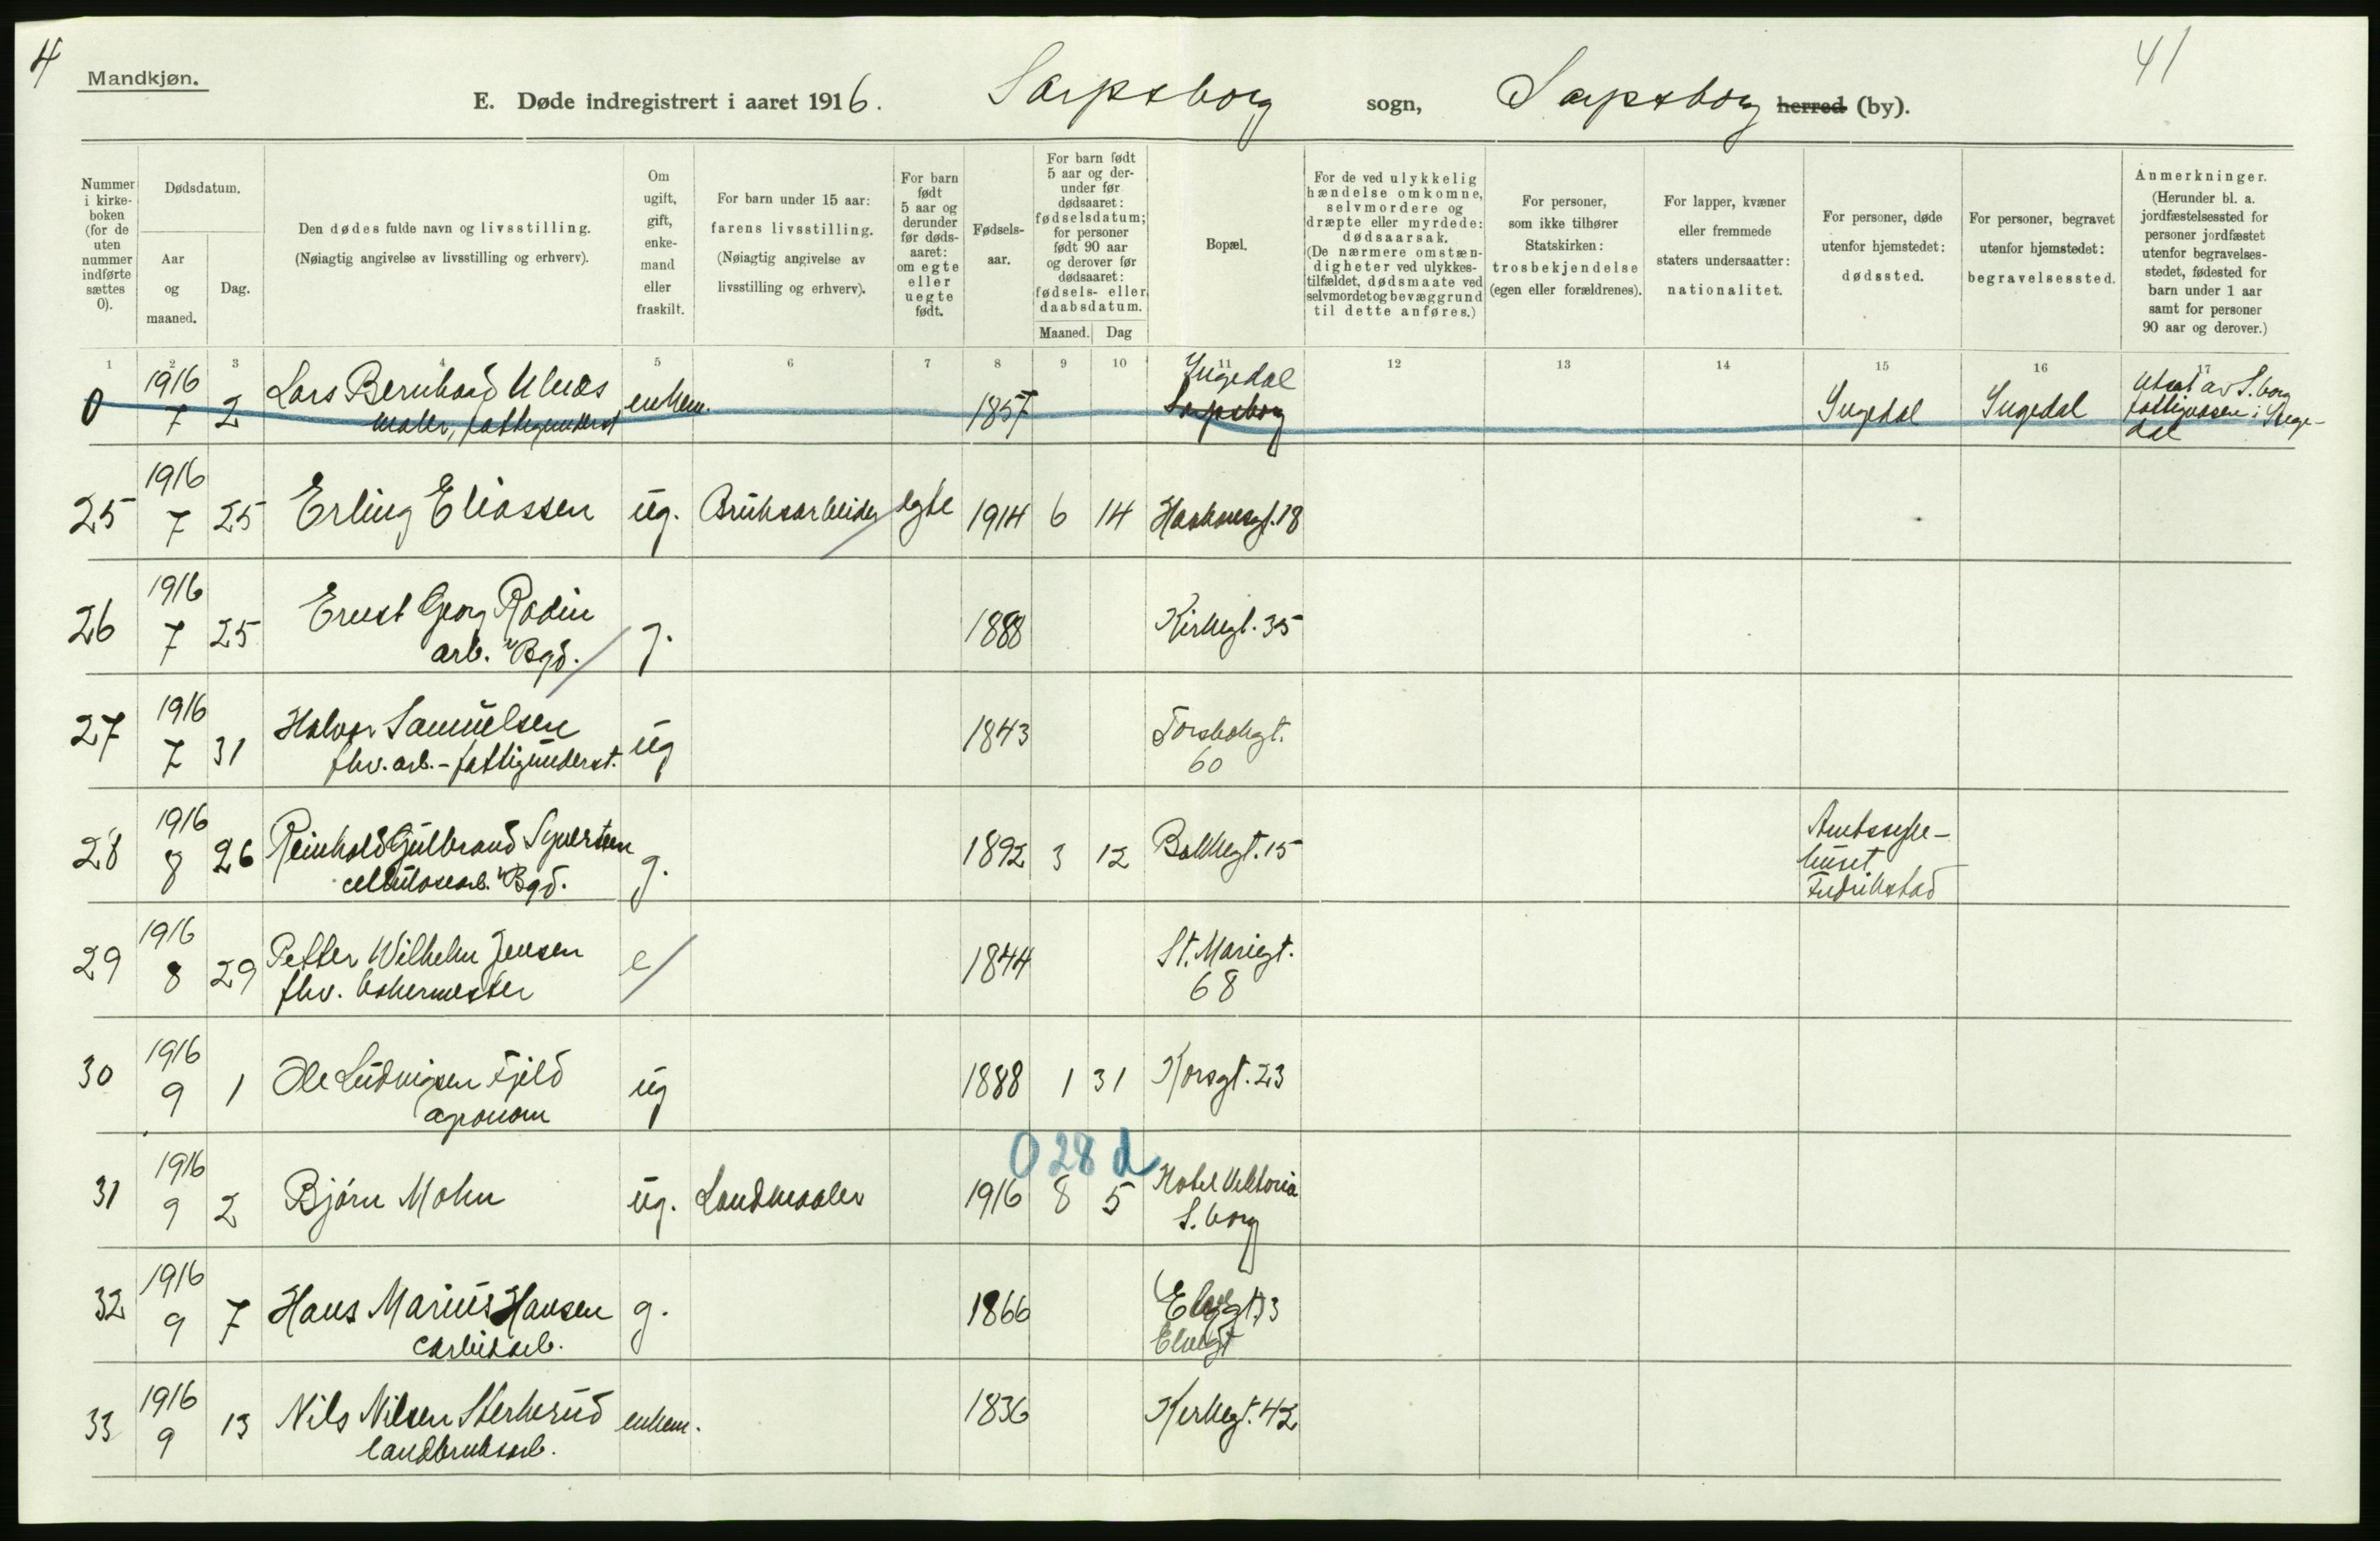 4
41
Mandkjøn.
E. Døde indregistrert i aaret 1916. Sarpsborg sogn, Sarpsborg herred (by).
Nummer i kirkeboken (for de uten nummer indførte sættes 0).
Dødsdatum.
Aar og maaned.
Dag.
Den dødes fulde navn og livsstilling.
(Nøiagtig angivelse av livsstilling og erhverv).
Om ugift, gift, enkemand eller fraskilt.
For barn under 15 aar:
farens livsstilling.
(Nøiagtig angivelse av livsstilling og erhverv).
For barn født 5 aar og derunder før dødsaaret: om egte eller uegte født.
Fødselsaar.
For barn født 5 aar og derunder før dødsaaret: fødselsdatum; for personer født 90 aar og derover før dødsaaret: fødsels- eller daabsdatum.
Maaned.
Dag
Bopæl.
For de ved ulykkelig hændelse omkomne, selvmordere og dræpte eller myrdede: dødsaarsak.
(De nærmere omstændigheter ved ulykkestilfældet, dødsmaate ved selvmordet og bevæggrund til dette anføres.)
For personer, som ikke tilhører Statskirken: trosbekjendelse (egen eller forældrenes).
For lapper, kvæner eller fremmede staters undersaatter: nationalitet.
For personer, døde utenfor hjemstedet: dødssted.
For personer, begravet utenfor hjemstedet: begravelsessted.
Anmerkninger.
(Herunder bl. a. jordfæstelsessted for personer jordfæstet utenfor begravelsesstedet, fødested for barn under 1 aar samt for personer 90 aar og derover.)
1 2 3 4 5 6 7 8 9 10 11 12 13 14 15 16 17
0 1916 7 2 Lars Bernhard Ulnæs enkem. 1857 Ingedal Sarpsborg Ingedal Ingedal Utsat av S.borg
maler, fattigunderst fattigvæsen i Ingedal
25 1916 7 25 Erling Eliassen ug. Bruksarbeider egte 1914 6 14 Haakonsgt. 18
26 1916 7 25 Ernst Georg Rodin g. 1888 Kirkegt. 35
arb. "Bgd.
27 1916 7 31 Halvor Samuelsen ug 1843 Torsbekgt. 60
fhv. arb. - fattigunderst.
28 1916 8 26 Reinhold Gulbrand Syversten g. 1892 3 12 Bakkegt. 15 Amtssykehuset Fredrikstad
cellulosearb. "Bgd.
29 1916 8 29 Petter Wilhelm Jensen e 1844 St. Mariegt. 68
fhv.
30 1916 9 1 Ole Ludvigsen Fjeld ug 1888 1 31 Korsgt. 23
agronom
0 28 d
31 1916 9 2 Bjørn Mohn ug. Landmaaler 1916 8 5 Hotel Viktoria S. borg
32 1916 9 7 Hans Marius Hansen g. 1866 13
carbidarb. Elvegt
33 1916 9 13 Nils Nilsen Sterkerud enkem. 1836 Kirkegt. 42
landbruksarb.